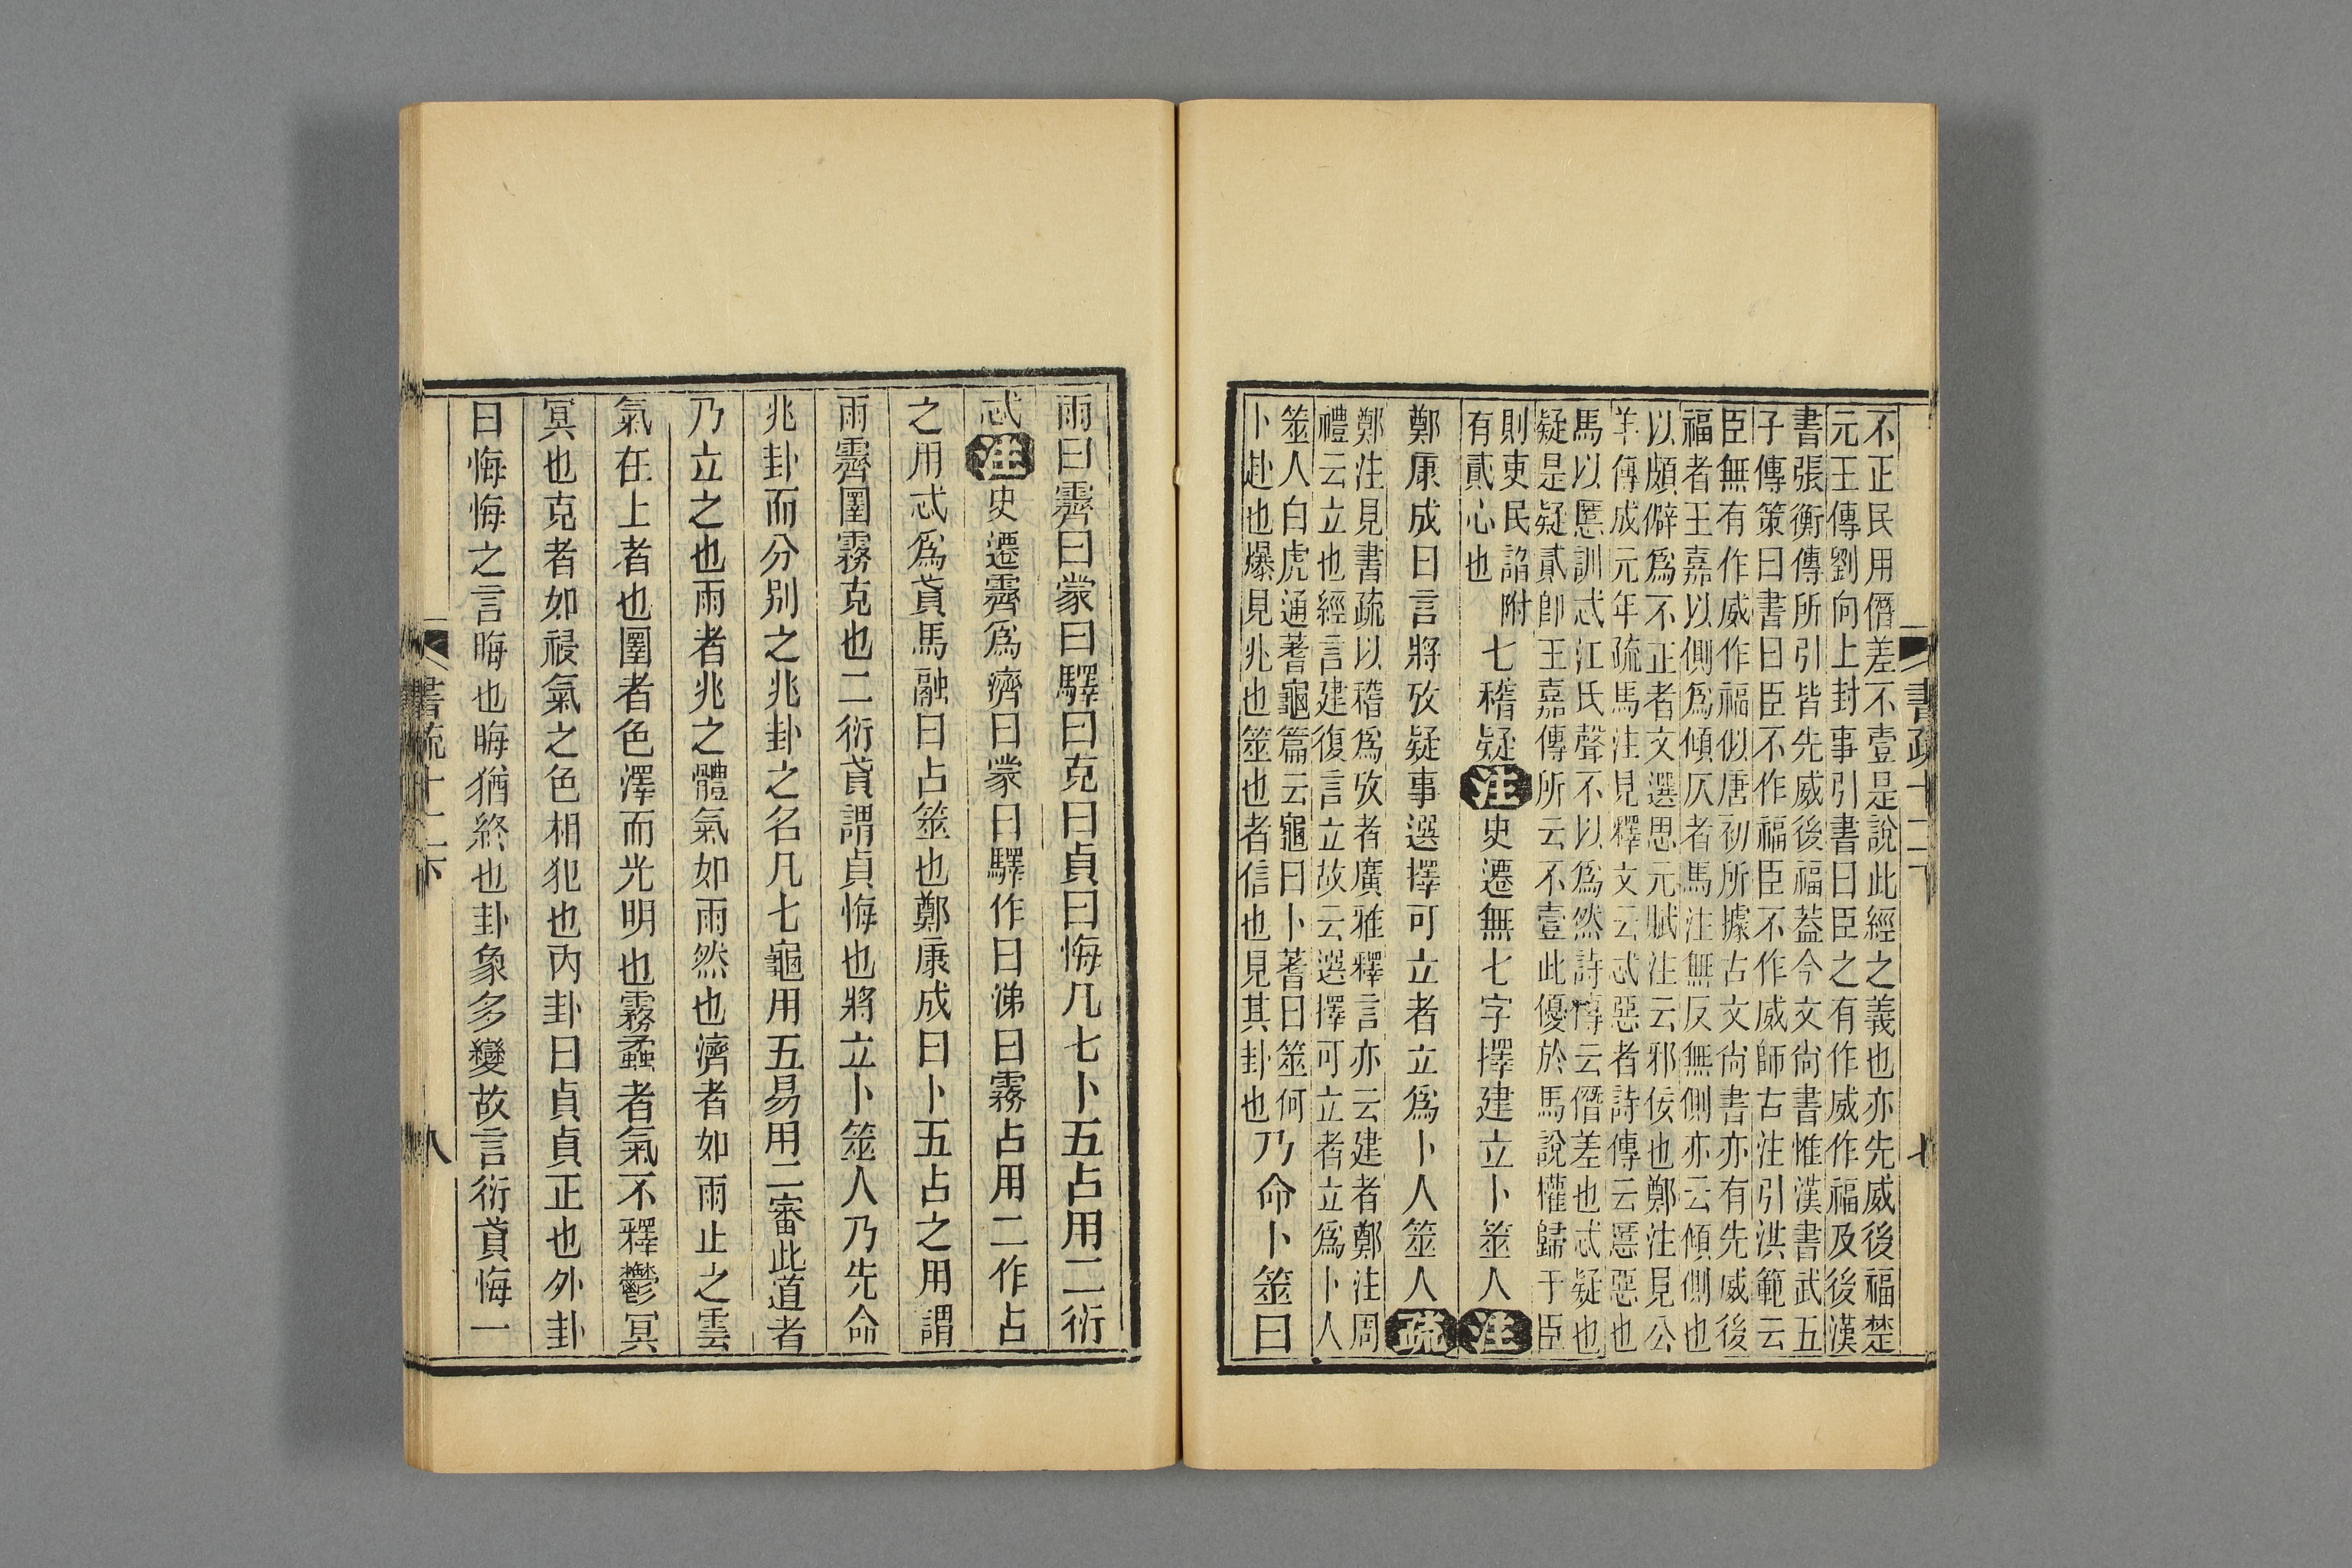 不正民用僭差不壹是說此經之義也亦先威後福楚
元王傳劉向上封事引書曰臣之有作威作福及後漢
書張衡傳所引皆先威後福葢今文尙書惟漢書武五
子傳策曰書曰臣不作福臣不作威師古注引洪範云
臣無有作威作福似唐初所據古文尙書亦有先威後
福者王嘉以側爲傾仄者馬注無反無側亦云傾側也
以頗僻爲不正者文選思元賦注云邪佞也鄭注見公
羊傳成元年疏馬注見釋文云忒惡者詩傳云慝惡也
馬以慝訓忒江氏聲不以爲然詩傳云僭差也忒疑也
疑是疑貳卽王嘉傳所云不壹此優於馬說權歸于臣
則吏民諂附
有貳心也
七稽疑注史遷無七字擇建立卜筮人注
鄭康成曰言將攷疑事選擇可立者立爲卜人筮人疏
鄭注見書疏以稽爲攷者廣雅釋言亦云建者鄭注周
禮云立也經言建復言立故云選擇可立者立爲卜人
筮人白虎通蓍龜篇云龜曰卜蓍曰筮何
卜赴也爆見兆也筮也者信也見其卦也
乃命卜筮曰
書疏十二下
七
雨曰霽曰蒙曰驛曰克曰貞曰悔凡七卜五占用二衍
忒注史遷霽爲濟曰蒙曰驛作曰涕曰霧占用二作占
之用忒爲貣馬融曰占筮也鄭康成曰卜五占之用謂
雨霽圛霧克也二衍貣謂貞悔也將立卜筮人乃先命
兆卦而分別之兆卦之名凡七龜用五易用二審此道者
乃立之也雨者兆之體氣如雨然也濟者如雨止之雲
氣在上者也圛者色澤而光明也霧蟊者氣不釋鬱冥
冥也克者如祲氣之色相犯也內卦曰貞貞正也外卦
曰悔悔之言晦也晦猶終也卦象多變故言衍貣悔一
書疏十二下
八